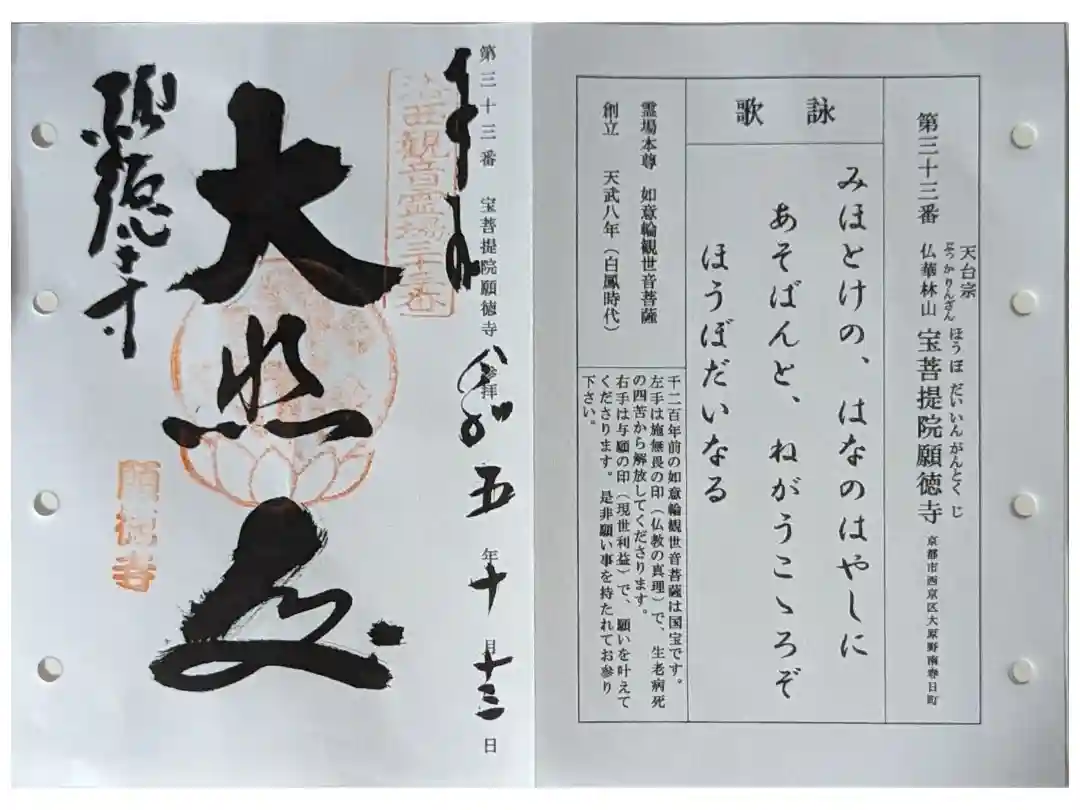 第三十三番　宝菩提院願徳寺　参拝
奉拝
令和五年十月十三日
洛西観音霊場三十三番
大悲殿
願徳寺
願徳寺
天台宗
第三十三番　仏華林山　宝菩提院願徳寺　京都市西京区大原野南春日町
ぶっかりんざん　ほうぼだいいんがんとくじ
詠　歌
みほとけの、はなのはやしに
あそばんと、ねがうこゝろぞ
ほうぼだいなる
霊場本尊　如意輪観世音菩薩
創立　天武八年（白鳳時代）
千二百年前の如意輪観世音菩薩は国宝です。
左手は施無畏の印（仏教の真理）で、生老病死
の四苦から解放してくださります。
右手は与願の印（現世利益）で、願いを叶えて
くださります。是非願い事を持たれてお参り
下さい。